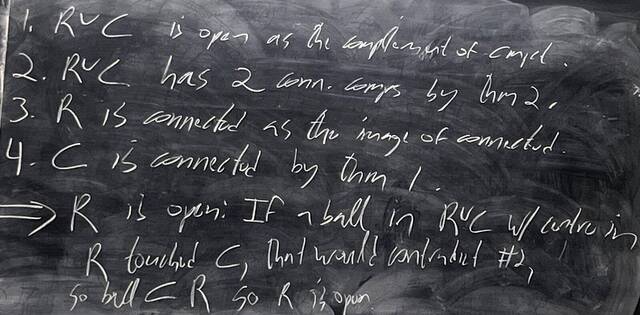 1. R∪C is open as the complement of cmpct.
2. R∪C has 2 conn. comps by thm 2.
3. R is connected as the image of connected.
4. C is connected by thm 1.
⟹ R is open: If a ball in R∪C w/ centre in
R touched C, that would contradict #2,
so ball ⊂ R so R is open